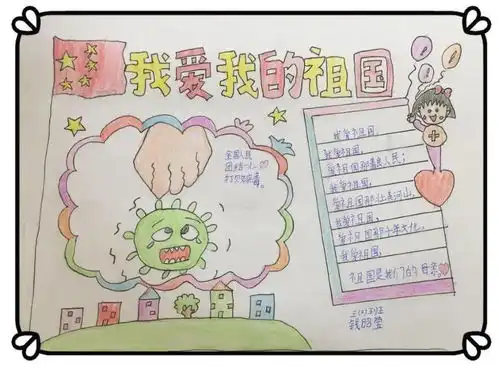 我爱我的祖国
全国人民
团结一心
打败病毒。
我爱祖国,
我爱祖国,
爱祖国那善良人民;
我爱祖国,
爱祖国那壮丽河山,
我爱祖国,
爱祖国那千年文化。
我爱祖国,
祖国是我们的母亲。
三(2)班
钱昭莹